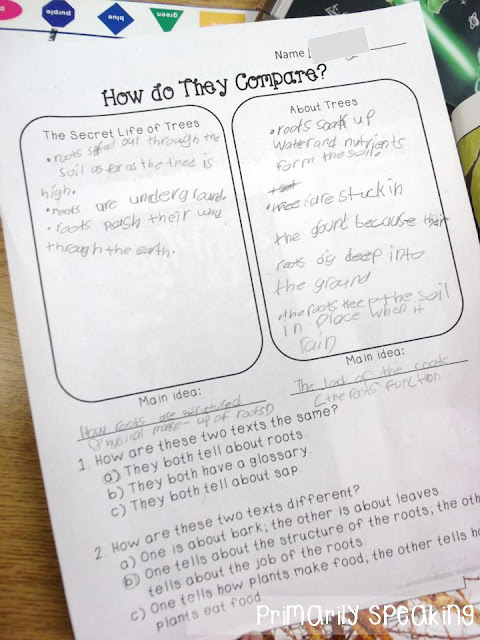 purple
blue
green
Name
How do They Compare?
The Secret Life of Trees
• roots spread out through the
soil as far as the tree is
high.
• roots are underground.
• roots push their way
through the earth.
About Trees
• roots soak up
water and nutrients
form the soil.
• tree are stuck in
the gount because their
roots dig deep into
the ground
• the roots keep the soil
in place when it
rain
Main idea:
How roots are structured
(Physical make-up of roots)
Main idea:
The of the roots
(the roots function
1. How are these two texts the same?
a) They both tell about roots.
b) They both have a glossary.
c) They both tell about sap.
2. How are these two texts different?
a) One is about bark; the other is about leaves
b) One tells about the structure of the roots, the oth
tells about the job of the roots.
c) One tells how plants make food; the other tells ho
plants eat food
Primarily Speaking